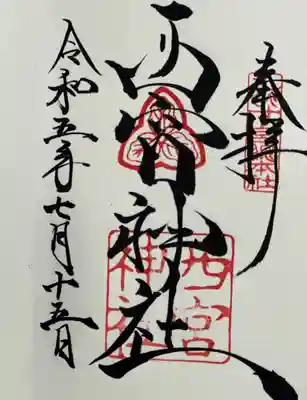 奉拝
西宮神社
西宮
神社
令和五年七月十五日